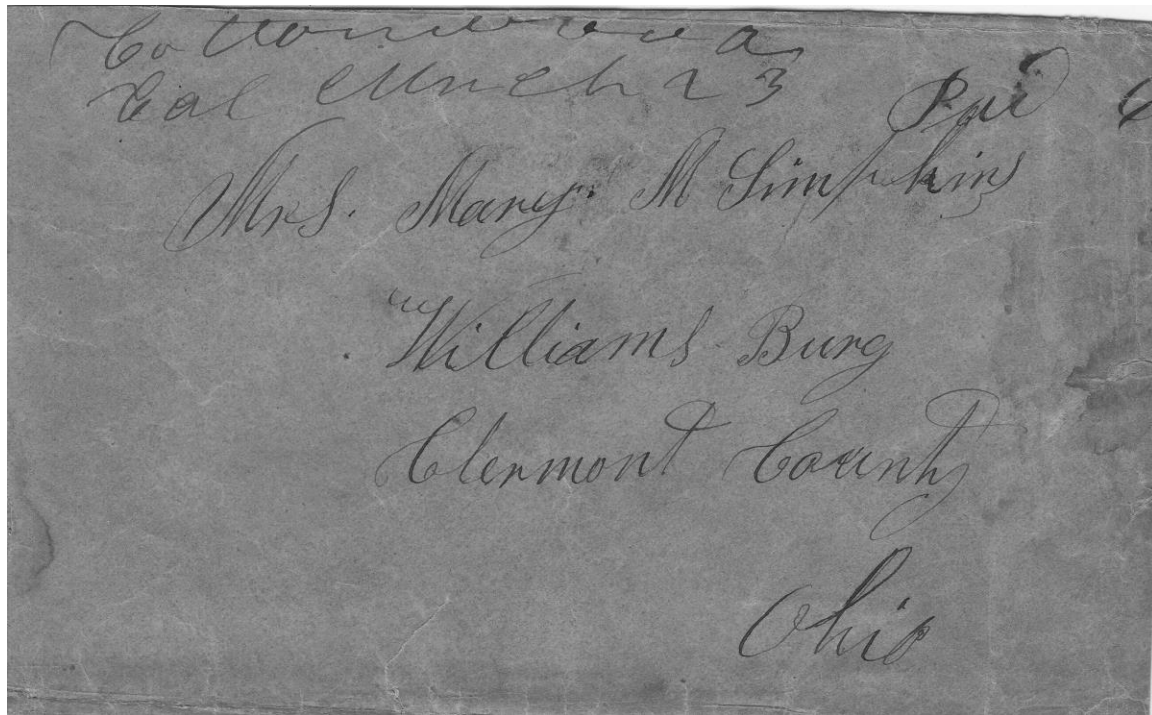 Cottonwood
Cal March 23 Paid
Mrs. Mary. M Simpkins
Williams Burg
Clermont County
Ohio